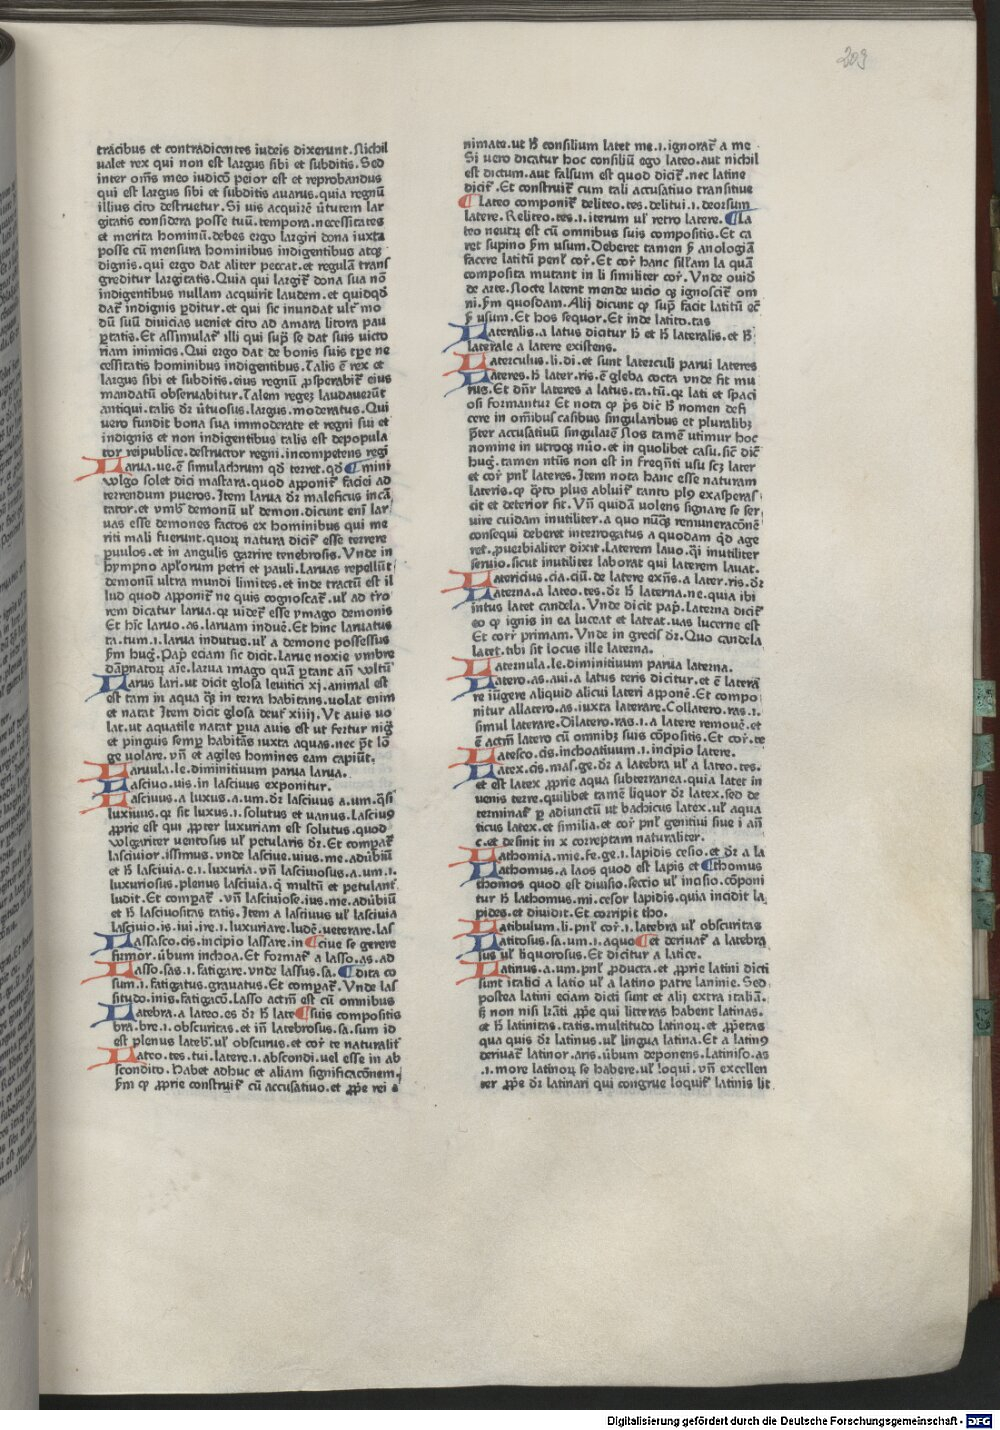 209
tracibus et contradicentes iudeis dixerunt. Nichil
ualet rex qui non est largus sibi et subditis. Sed
inter om̄s meo iudicō peior est et reprobandus
qui est largus sibi et subditis auarus. quia regnū
illius cito destruetur. Si uis acquirē ūtutem lar
gitatis considera posse tuū. tempora. necessitates
et merita hominū. debes ergo largiri dona iuxta
posse cū mensura hominibus indigentibus atqꝫ
dignis. qui ergo dat aliter peccat. et regulā trans
greditur largitatis. Quia qui largit᷑ dona sua nō
indigentibus nullam acquirit laudem. et quidqd
dat᷑ indignis ꝑditur. et qui sic inundat ult᷑ mo
dū suū diuicias ueniet cito ad amara litora pau
ꝑtatis. Et assimulat᷑ illi qui suꝑ se dat suis uicto
riam inimicis. Qui ergo dat de bonis suis tꝑe ne
cessitatis hominibus indigentibus. Talis ē rex et
largus sibi et subditis. eius regnū ꝓsperabit᷑ eius
mandatū obseruabitur. Talem regeꝫ laudauerūt
antiqui. talis dꝛ ūtuosus. largus. moderatus. Qui
uero fundit bona sua immoderate et regni sui et
indignis et non indigentibus talis est depopula
tor reipublice. destructor regni. incompetens regī
Larua. ue. ē simulachrum qd terret. qd ¶ mini
wlgo solet dici mastara. quod apponit᷑ faciei ad
terrendum pueros. Item larua dꝛ maleficus incā
tator. et vmb᷑ demonū ul᷑ demon. dicunt enī lar
uas esse demones factos ex hominibus qui me
riti mali fuerunt. quoꝝ natura dicit᷑ esse terrere
puulos. et in angulis garrire tenebrosis. Vnde in
hympno apl̄orum petri et pauli. Laruas repellūt
demonū ultra mundi limites. et inde tractū est il
lud quod apponit᷑ ne quis cognoscat᷑. ul᷑ ad tro
rem dicatur larua. qꝛ uidet᷑ esse ymago demonis
Et hīc laruo. as. laruam induē. Et hinc laruatus
ta. tum. i. larua indutus. ul᷑ a demone possessus
ẜm hug᷑. Pap᷑ eciam sic dicit. Larue noxie vmbre
dāpnatoꝝ aīe. larua imago quā ꝑtant an̄ wltū
Larus lari. ut dicit glosa leuitici xj. animal est
est tam in aqua qꝫ in terra habitans. uolat enim
et natat Item dicit glosa deut᷑ xiiij. Vt auis uo
lat. ut aquatile natat ꝑua auis est ut fertur nig᷑
et pinguis semꝑ habitās iuxta aquas. nec pt̄ lō
ge uolare. vn̄ et agiles homines eam capiūt.
Laruula. le. diminitiuum parua larua.
Lasciuo. uis. in lasciuus exponitur.
Lasciuus. a luxus. a. um. dꝛ lasciuus a. um. qꝫi
luxiuus. qꝛ sit luxus. i. solutus et uanus. Lasciuꝰ
ꝓprie est qui ꝓpter luxuriam est solutus. quod
wlgariter uentosus ul᷑ petularis dꝛ. Et compat᷑
lasciuior. issimus. vnde lasciue. uius. me. adūbiū
et ħ lasciuia. e. i. luxuria. vn̄ lasciuiosus. a. um. i.
luxuriosus. plenus lasciuia. q̄ multū et petulant᷑
ludit. Et compat᷑. vn̄ lasciuiose. ius. me. adūbiū
et ħ lasciuiositas tatis. Item a lasciuus ul᷑ lasciuia
lasciuio. is. iui. ire. i. luxuriare. ludē. ueterare. las
Lassasco. cis. incipio lassare. in ¶ ciue se gerere
fumor. ūbum inchoa. Et format᷑ a lasso. as. ad
Lasso. sas. i. fatigare. vnde lassus. sa. ¶ dita co
sum. i. fatigatus. grauatus. Et compat᷑. Vnde las
situdo. inis. fatigacō. Lasso actm̄ est cū omnibus
Latebra. a lateo. es dꝛ ħ late ¶ suis compositis
bra. bre. i. obscuritas. et in̄ latebrosus. sa. sum id
est plenus lateb᷑. ul᷑ obscurus. et cor᷑ te naturalit᷑
Lateo. tes. tui. latere. i. abscondi. uel esse in ab
scondito. Habet adhuc et aliam significacōnem.
ẜm qꝫ ꝓprie construit᷑ cū accusatiuo. et ꝓpe rei a
nimate. ut ħ consilium latet me. i. ignorat᷑ a me.
Si uero dicatur hoc consiliū ego lateo. aut nichil
est dictum. aut falsum est quod dicit᷑. nec latine
dicit᷑. Et construit᷑ cum tali accusatiuo transitiue
¶ Lateo componit᷑ deliteo. tes. delitui. i. deorsum
latere. Reliteo. tes. i. iterum ul᷑ retro latere. ¶ La
teo neutꝝ est cū omnibus suis compositis. Et ca
ret supino ẜm usum. Deberet tamen ꝑ anologiā
facere latitū penl᷑ cor᷑. Et cor᷑ hanc sill᷑am la quā
composita mutant in li similiter cor᷑. Vnde ouid᷑
de arte. Nocte latent mende uicio qꝫ ignoscit᷑ om
ni. ẜm quosdam. Alij dicunt qꝫ suꝑ facit latitū ec᷑
ꝑ usum. Et hos sequor. Et inde latito. tas
Lateralis. a latus dicitur ħ et ħ lateralis. et ħ
laterale a latere existens.
Laterculus. li. di. et sunt laterculi parui lateres
Lateres. ħ later. ris. ē gleba cocta vnde fit mu
rus. Et dn̄r lateres a latus. ta. tū. qꝛ lati et spaci
osi formantur Et nota qꝫ pꝰs dic᷑ ħ nomen defi
cere in om̄ibus casibus singularibus et pluralibꝫ
p̄ter accusatiuū singularē Nos tamē utimur hoc
nomine in utroqꝫ nūo. et in quolibet casu. sic᷑ dic᷑
hug᷑. tamen nt̄us non est in freqn̄ti usu scꝫ later
et cor᷑ pnl᷑ lateres. Item nota hanc esse naturam
lateris. qꝫ q̄to plus abluit᷑ tanto plꝰ exasperas
cit et deterior fit. Vn̄ quidā uolens signare se ser
uire cuidam inutiliter. a quo nūqꝫ remuneracōnē
consequi deberet interrogatus a quodam qd age
ret. ꝓuerbialiter dixit. Laterem lauo. q̄i inutiliter
seruio. sicut inutiliter laborat qui laterem lauat.
Latericius. cia. ciū. de latere exn̄s. a later. ris. dꝛ
Laterna. a lateo. tes. dꝛ ħ laterna. ne. quia ibi
intus latet candela. Vnde dicit pap᷑. Laterna dicit᷑
eo qꝫ ignis in ea luceat et lateat. uas lucerne est
Et corr᷑ primam. Vnde in grecis dꝛ. Quo candela
latet. tibi sit locus ille laterna.
Laternula. le. diminitiuum parua laterna.
Latero. as. aui. a latus teris dicitur. et ē laterā
re iūgere aliquid alicui lateri apponē. Et compo
nitur allatero. as. iuxta laterare. Collatero. ras. i.
simul laterare. Dilatero. ras. i. a latere remouē. et
ē actm̄ latero cū omnibꝫ suis cōpositis. Et cor᷑. te
Latesco. cis. inchoatiuum. i. incipio latere.
Latex. cis. mas. ge. dꝛ a latebra ul᷑ a lateo. tes.
et est latex ꝓprie aqua subterranea. quia latet in
uenis terre. quilibet tamē liquor dꝛ latex. sed de
terminat᷑ ꝑ adiunctū ut bachicus latex. ul᷑ aqua
ticus latex. et similia. et cor᷑ pnl᷑ gentiui siue i an̄
c. et desinit in x correptam naturaliter.
Lathomia. mie. fe. ge. i. lapidis cesio. et dꝛ a la
Lathomus. a laos quod est lapis et ¶ thomus
thomos quod est diuisio. sectio ul᷑ incisio. cōponi
tur ħ lathomus. mi. cesor lapidis. quia incidit la
pides. et diuidit. Et corripit tho.
Latibulum. li. pnl᷑ cor᷑. i. latebra ul᷑ obscuritas
Laticosus. sa. um. i. aquo ¶ et deriuat᷑ a latebra
sus ul᷑ liquorosus. Et dicitur a latice.
Latinus. a. um. pnl᷑ ꝓducta. et ꝓprie latini dicti
sunt italici a latio ul᷑ a latino patre laninie. Sed
postea latini eciam dicti sunt et alij extra italiā.
ẜ non nisi lrāti ꝓpe qui litteras habent latinas.
et ħ latinitas. tatis. multitudo latinoꝝ. et ꝓpetas
qua quis dꝛ latinus. ul᷑ lingua latina. Et a latinꝰ
deriuat᷑ latinor. aris. ūbum deponens. Latiniso. as
.i. more latinoꝝ se habere. ul᷑ loqui. vn̄ excellen
ter ꝓpe dꝛ latinari qui congrue loquit᷑ latinis lit
Digitalisierung gefördert durch die Deutsche Forschungsgemeinschaft - DFG